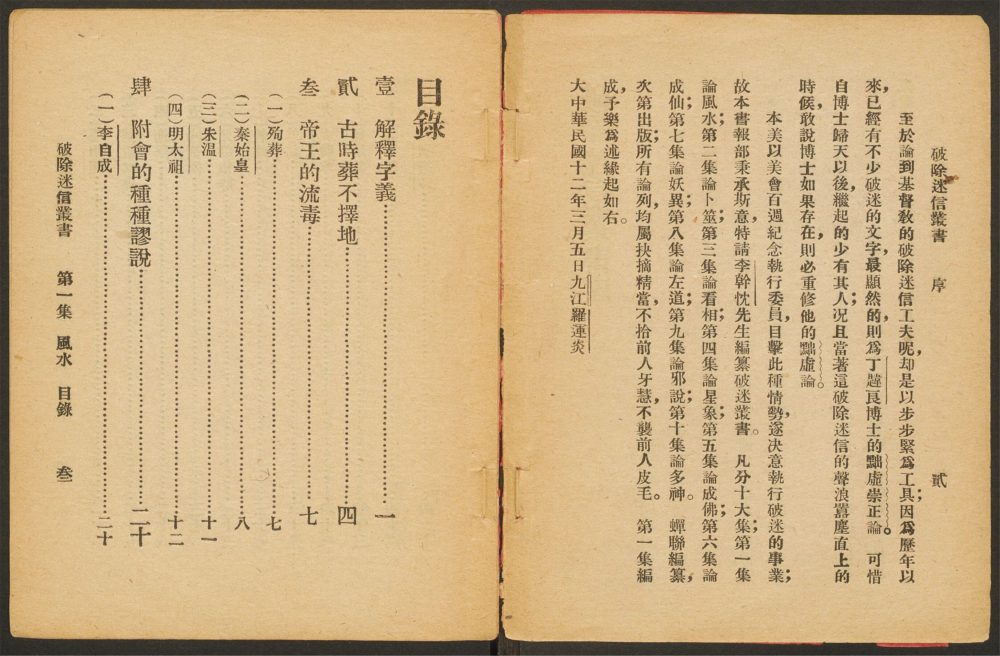 破除迷信叢書 序 貳
至於論到基督教的破除迷信工夫呢,却是以步步緊爲工具;因爲歷年以
來,已經有不少破迷的文字,最顯然的,則爲丁韙良博士的黜虛崇正論。可惜
自博士歸天以後,繼起的少有其人;况且當著這破除迷信的聲浪囂塵直上的
時候,敢說博士如果存在,則必重修他的黜虛論。
本美以美會百週紀念執行委員,目擊此種情勢,遂决意執行破迷的事業;
故本書報部秉承斯意,特請李幹忱先生編纂破迷叢書。凡分十大集;第一集
論風水;第二集論卜筮;第三集論看相;第四集論星象;第五集論成佛;第六集論
成仙;第七集論妖異;第八集論左道;第九集論邪說;第十集論多神。蟬聯編纂,
次第出版,所有論列,均屬抉摘精當,不拾前人牙慧,不襲前人皮毛。第一集編
成,予樂爲述緣起如右。
大中華民國十二年三月五日九江羅運炎
目錄
壹 解釋字義…………一
貳 古時葬不擇地…………四
叁 帝王的流毒…………七
(一)殉葬…………七
(二)秦始皇…………八
(三)朱溫…………十一
(四)明太祖…………十二
肆 附會的種種謬說…………二十
(一)李自成…………二十
破除迷信叢書 第一集 風水 目錄 叁